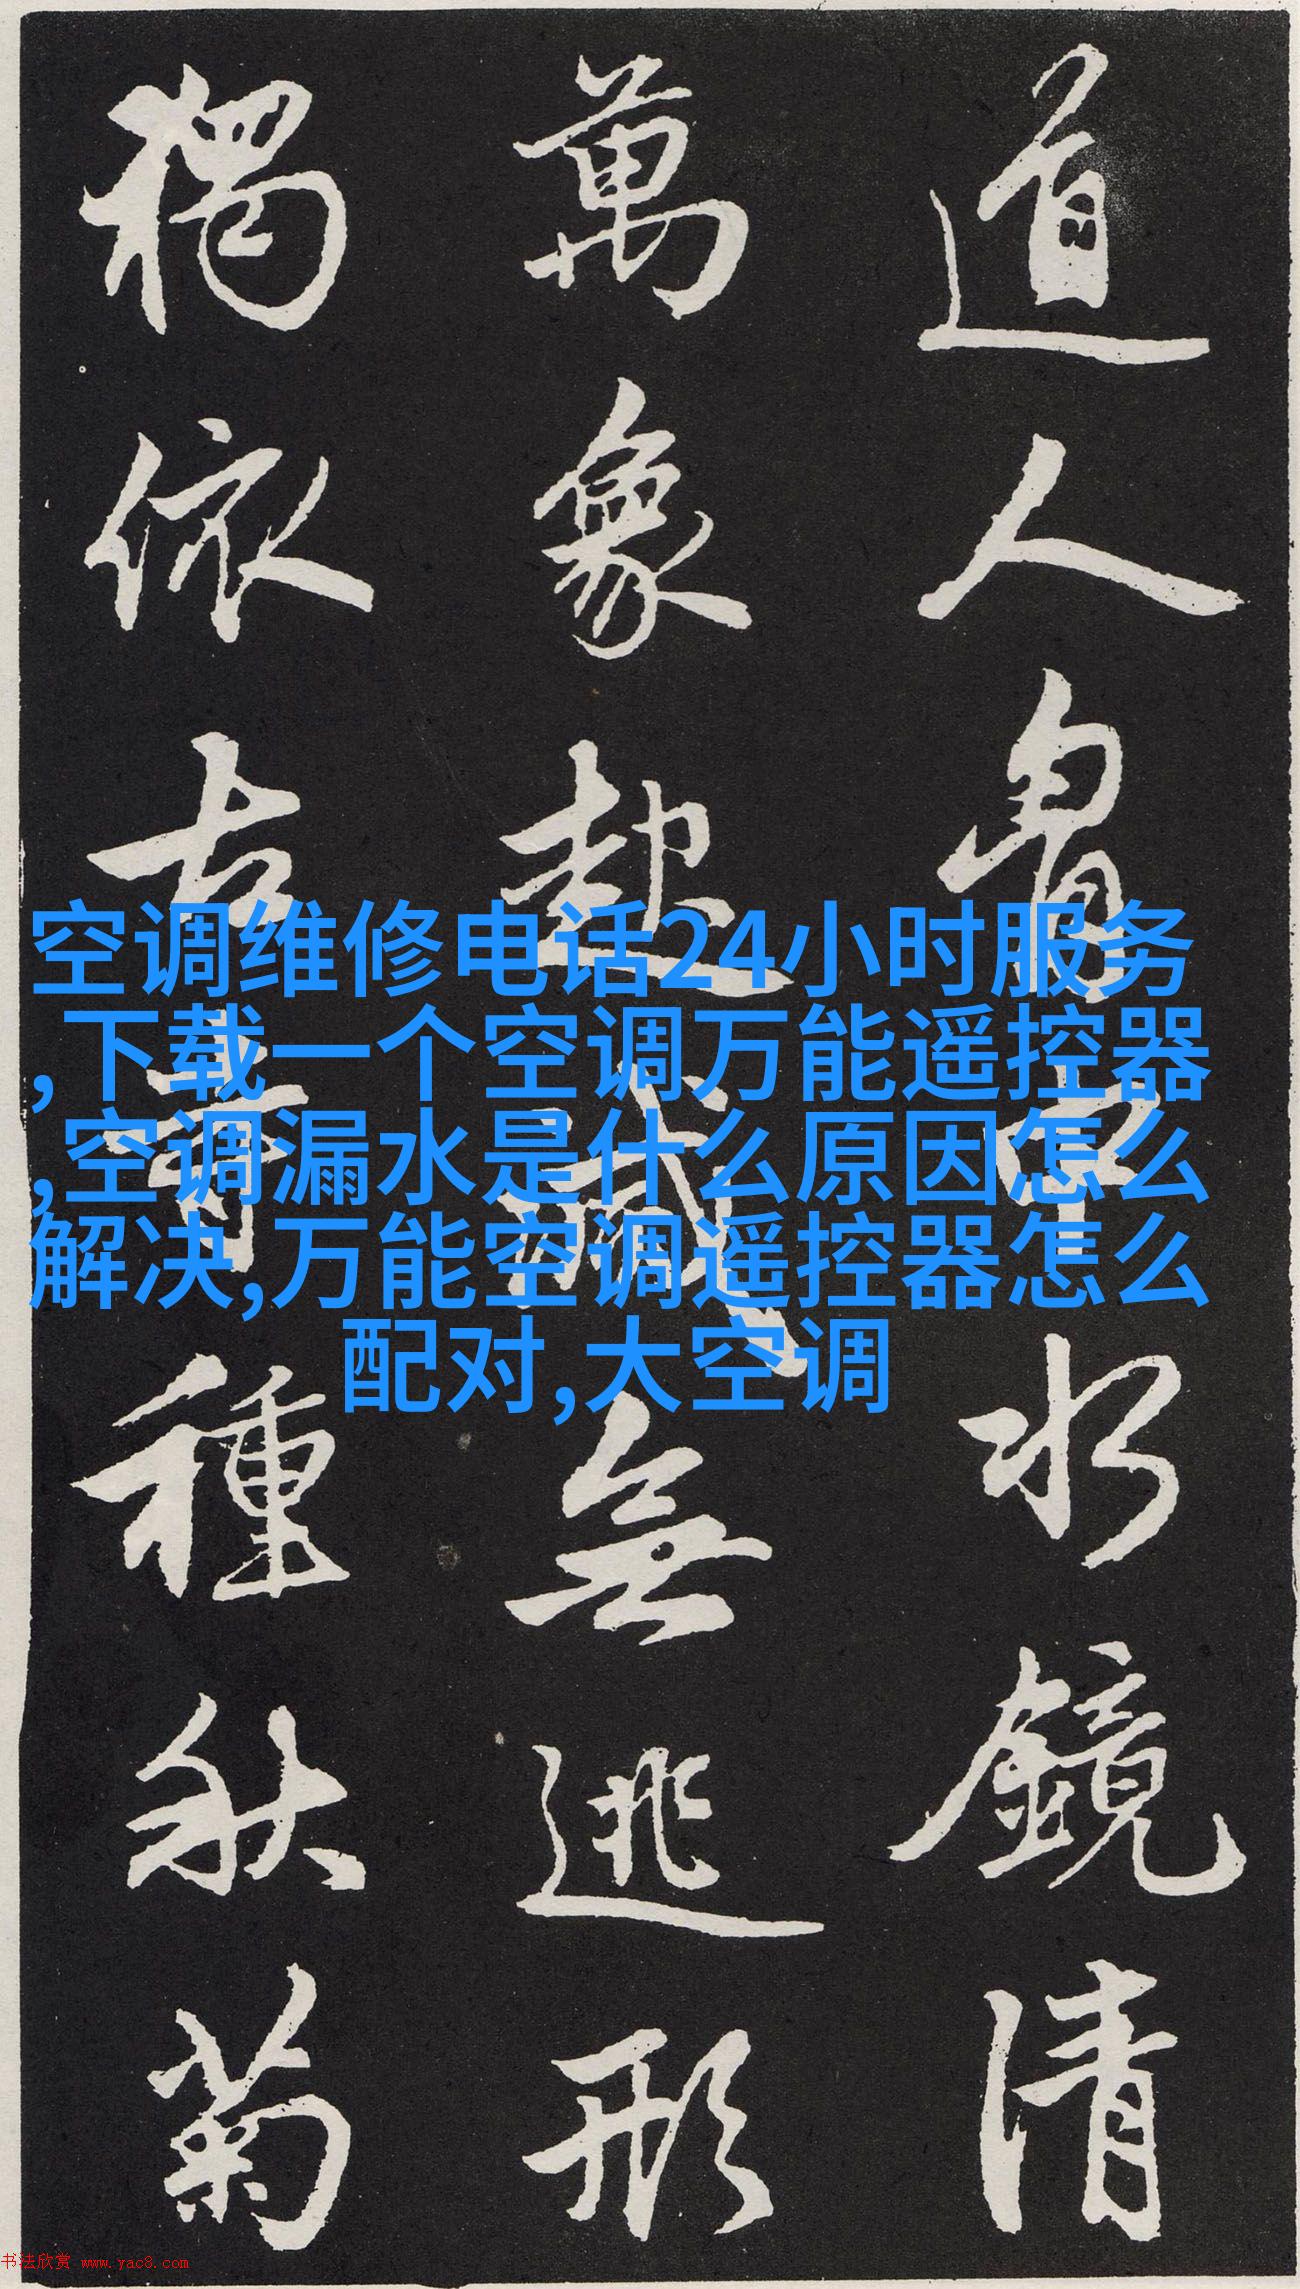 道人胷中水鏡清
萬象起滅無逃形
獨依古寺種秋菊
空调维修电话24小时服务
,下载一个空调万能遥控器
,空调漏水是什么原因怎么
解决,万能空调遥控器怎么
配对,大空调
书法欣赏 www.yac8.com